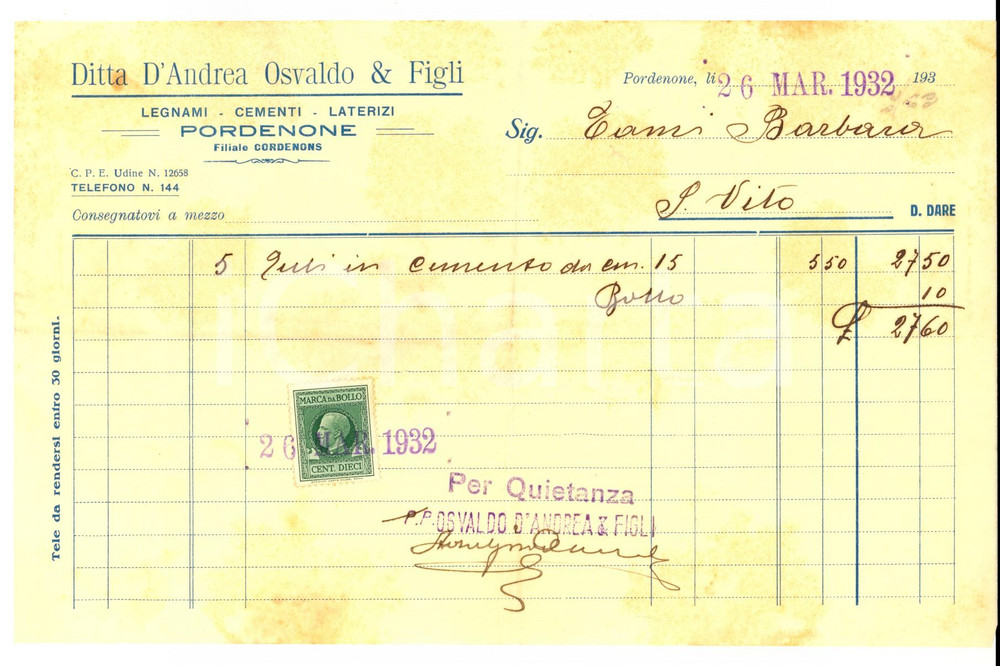 Ditta D'Andrea Osvaldo & Figli
LEGNAMI - CEMENTI - LATERIZI
PORDENONE
Filiale CORDENONS
C. P. E. Udine N. 12658
TELEFONO N. 144
Consegnatovi a mezzo
Pordenone, li 26 MAR. 1932 193
Sig. Tami Barbara
S. Vito
D. DARE
5 Tubi in cemento da cm. 15 550 2750
Bollo 10
£ 2760
Tele da rendersi entro 30 giorni.
MARCA DA BOLLO
26 MAR. 1932
CENT. DIECI
Per Quietanza
P.P. OSVALDO D'ANDREA & FIGLI
iCharta